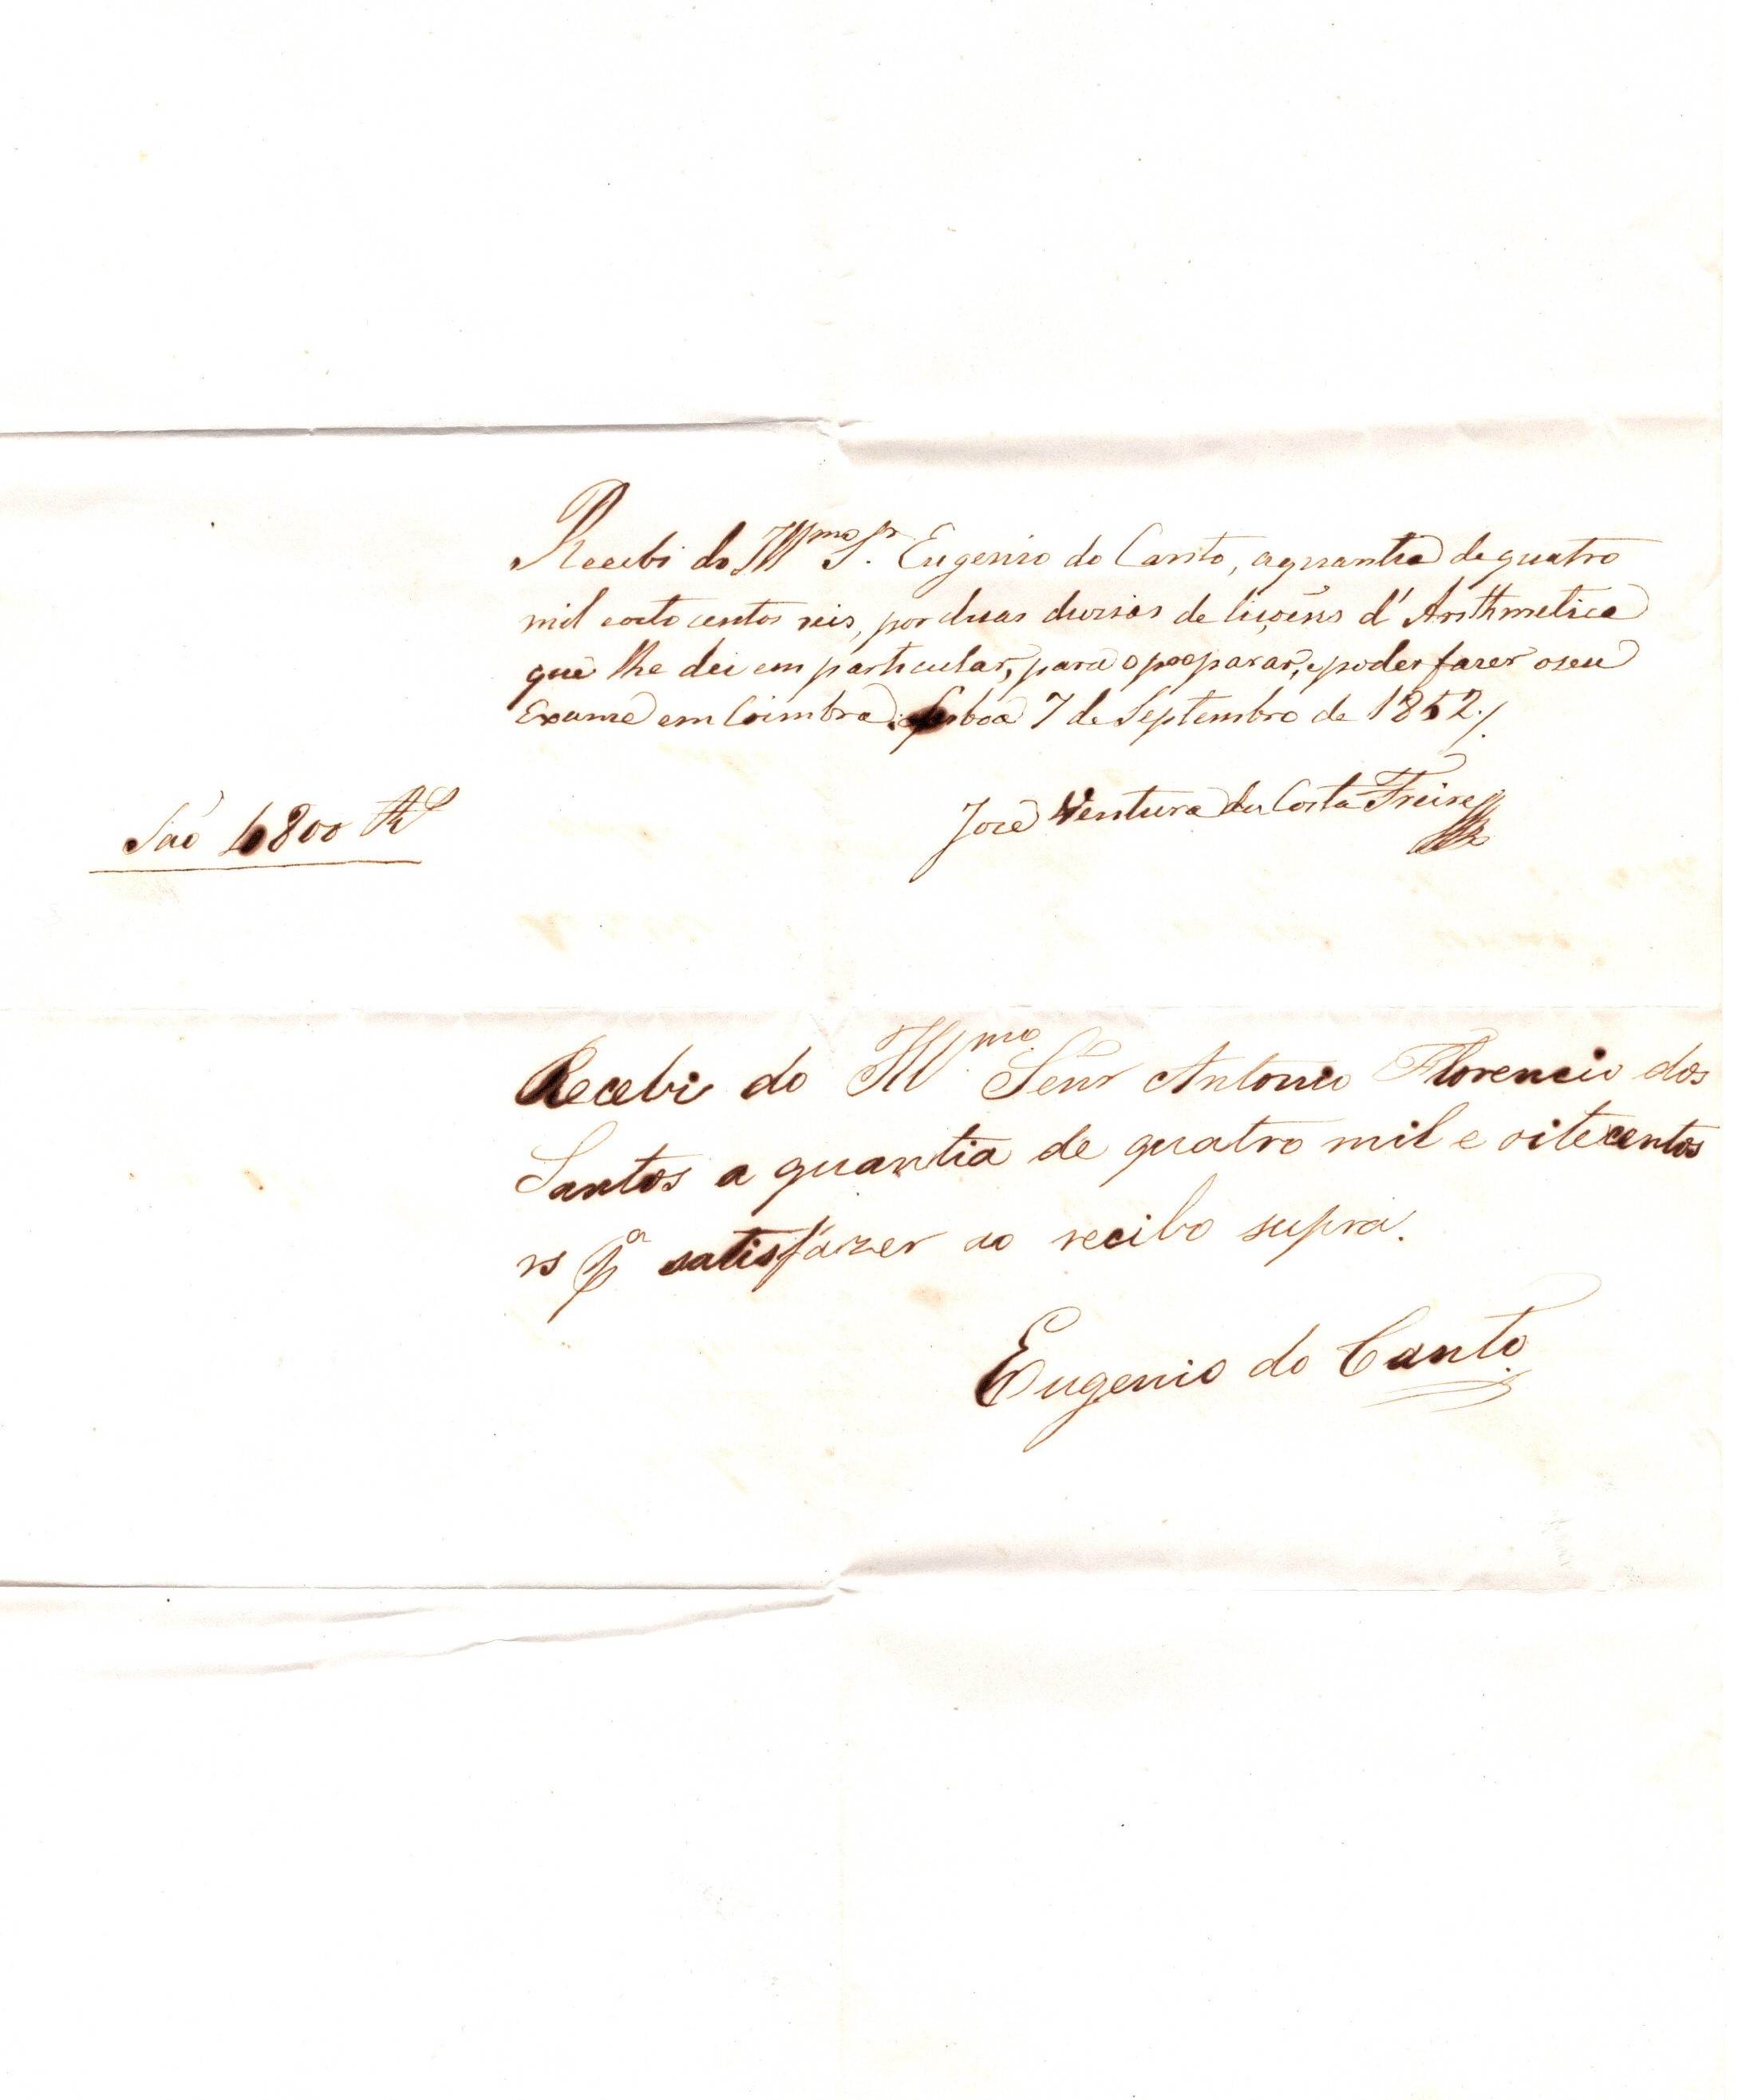 Recebi do Illmo Sr. Eugenio do Canto, a quantia de quatro
mil e oito centos reis, por duas duzias de liçoens d'Arithmetica
que lhe dei em particular, para o preparar, e poder fazer o seu
Exame em Coimbra. Lisboa 7 de Septembro de 1852./.
José Ventura da Costa Freire
Saõ 4800 Rs
Recebi do Illmo Senr Antonio Florencio dos
Santos a quantia de quatro mil e oitocentos
rs pa satisfazer ao recibo supra.
Eugenio do Canto